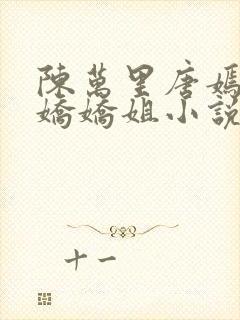 陳萬里唐嫣
嬌嬌姐小說
十一